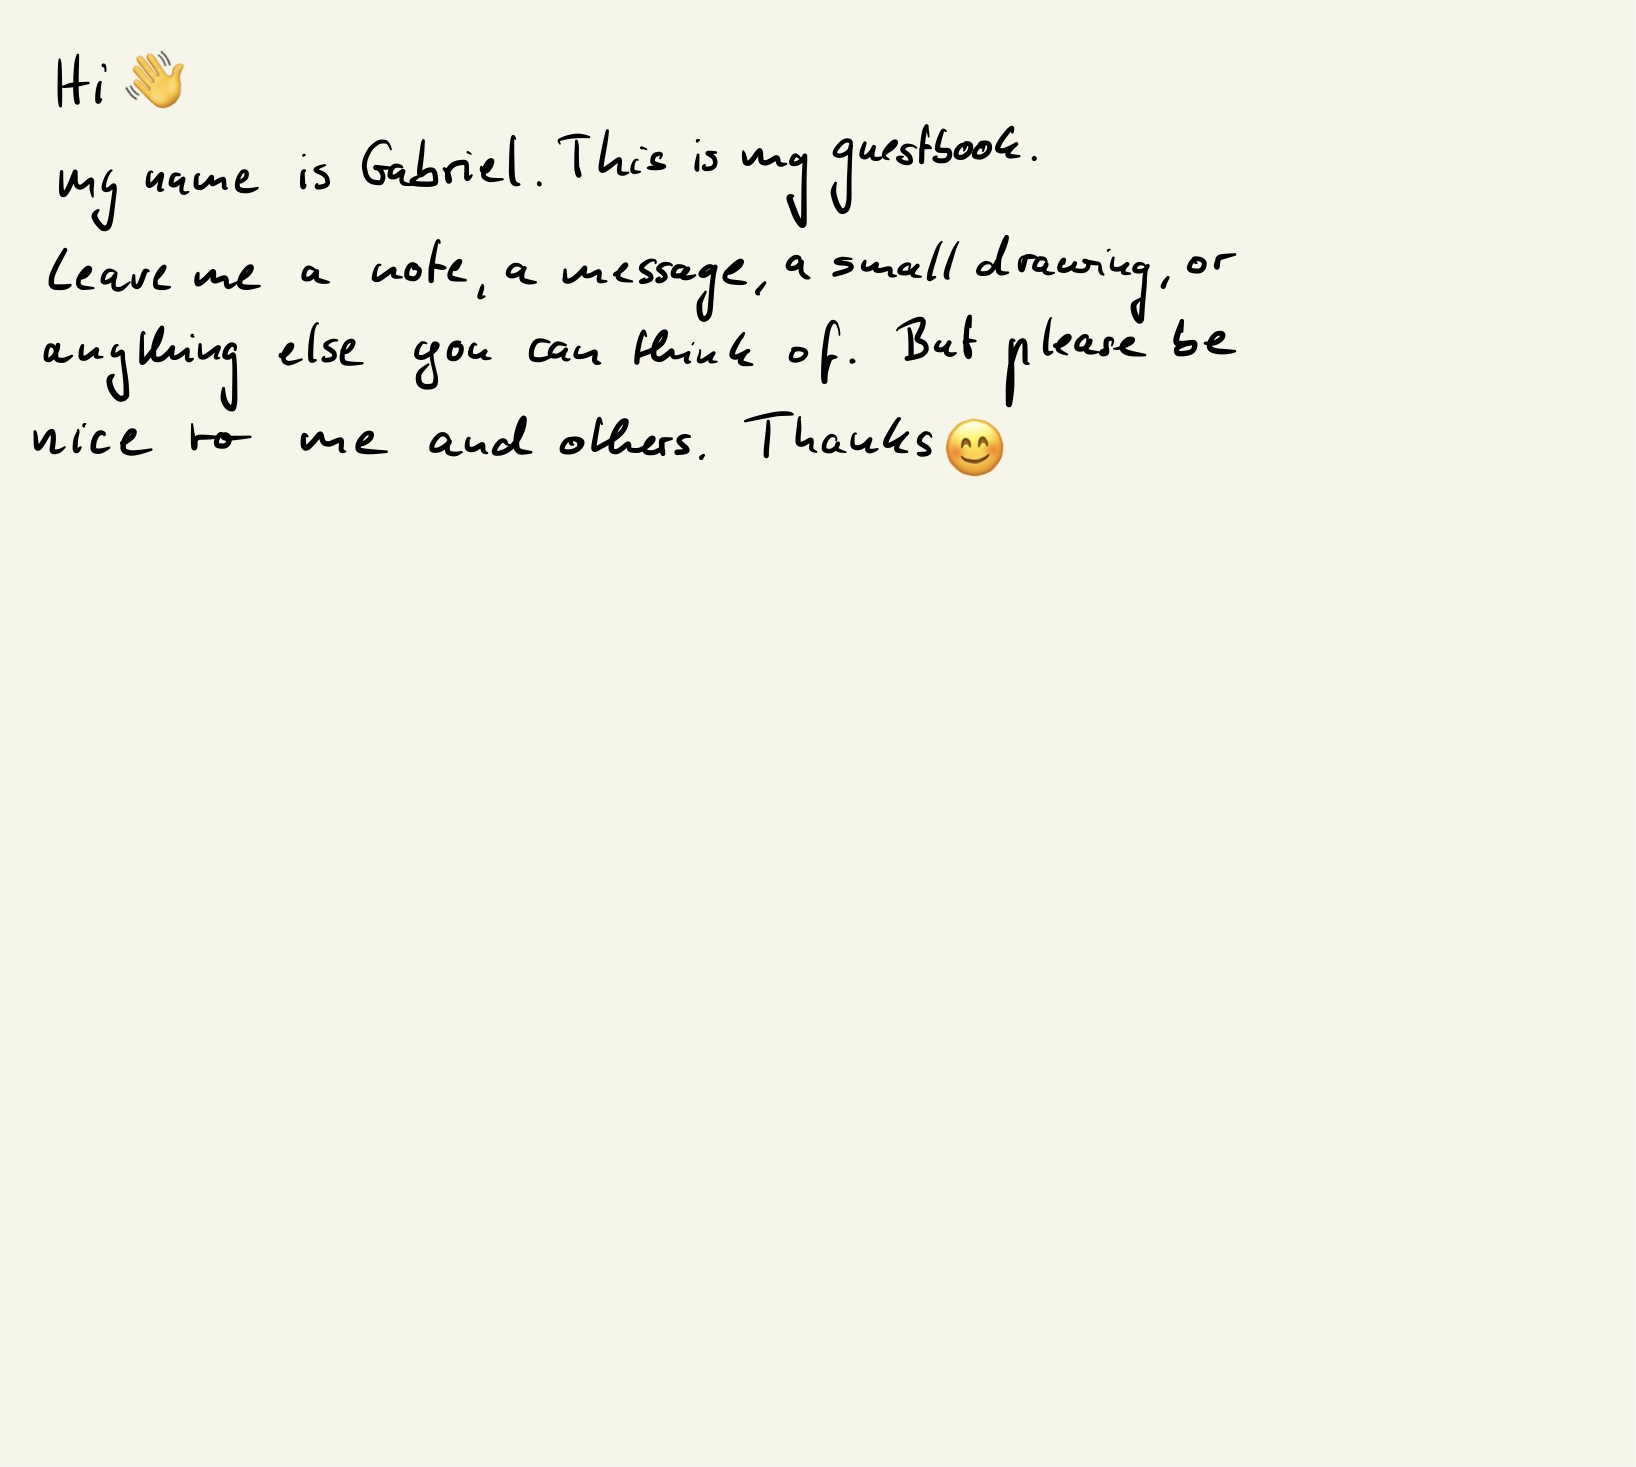 Hi 👋
my name is Gabriel. This is my guestbook.
Leave me a note, a message, a small drawing, or
anything else you can think of. But please be
nice to me and others. Thanks 😊